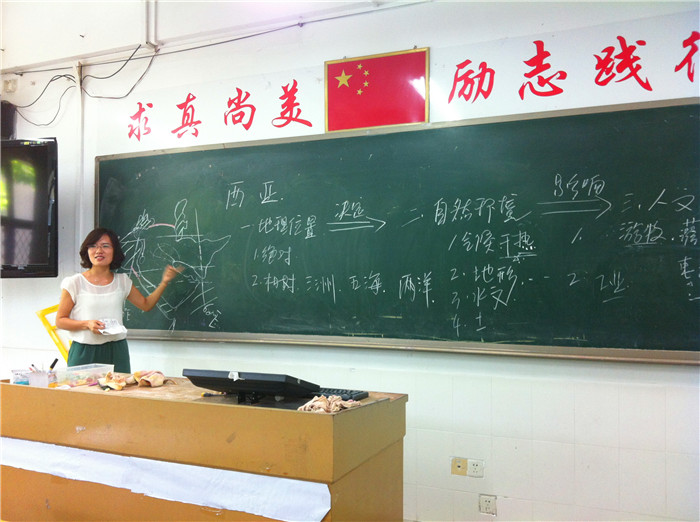 求真尚美
励志践行
西亚
一、地理位置
1. 绝对
2. 相对 三洲、五海、两洋.
决定
二、自然环境
1. 气候 干热
2. 地形.
3. 水文.
4. 土
影响
三、人文
1. 游牧、
2. 工业